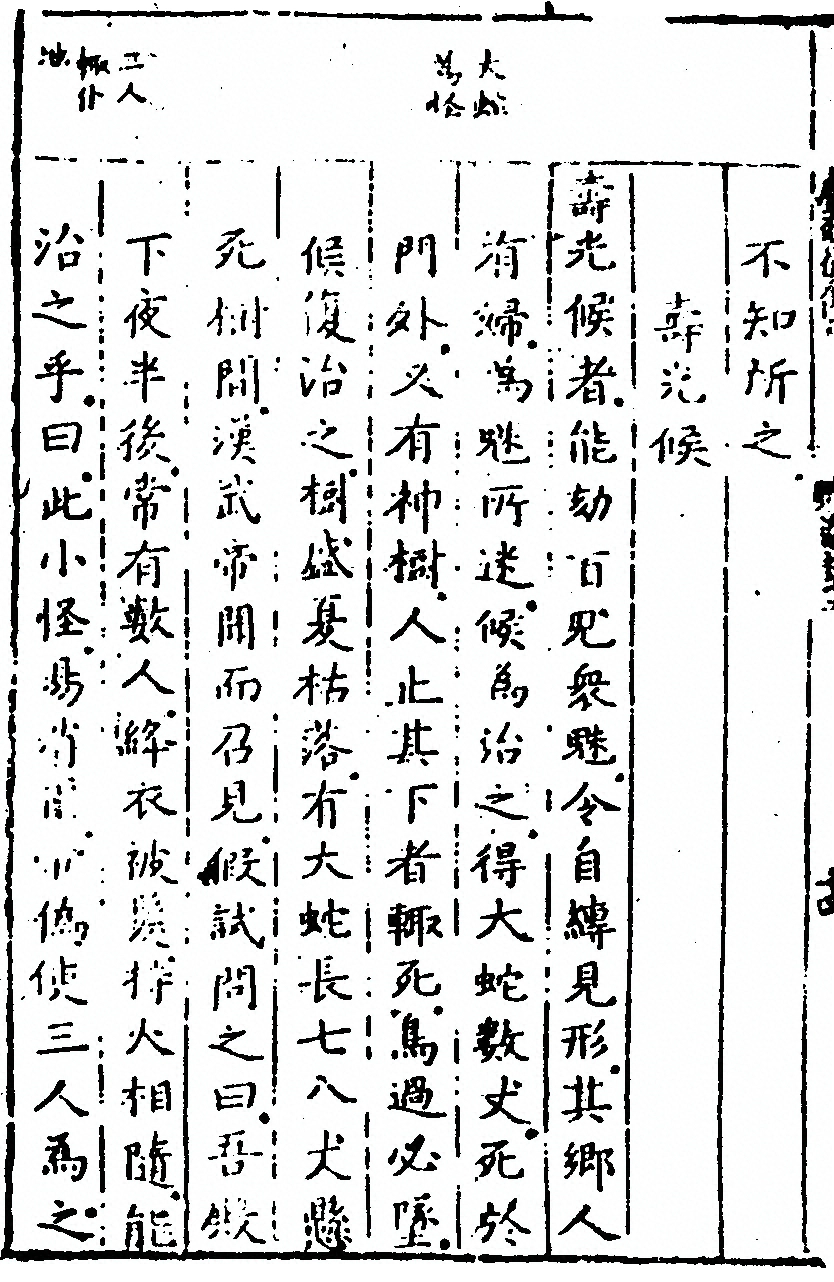 不知所之
壽光候
大蛇
為怪
壽光候者能劾百鬼衆魅令自縛見形其鄉人
有婦為魅所迷候為治之得大蛇數丈死於
門外又有神樹人止其下者輙死鳥過必墜
候復治之樹盛夏枯落有大蛇長七八丈懸
死樹間漢武帝聞而召見假試問之曰吾殿
三人
輙仆
地
下夜半後常有數人絳衣被髮持火相隨能
治之乎曰此小怪易消偽使三人為之